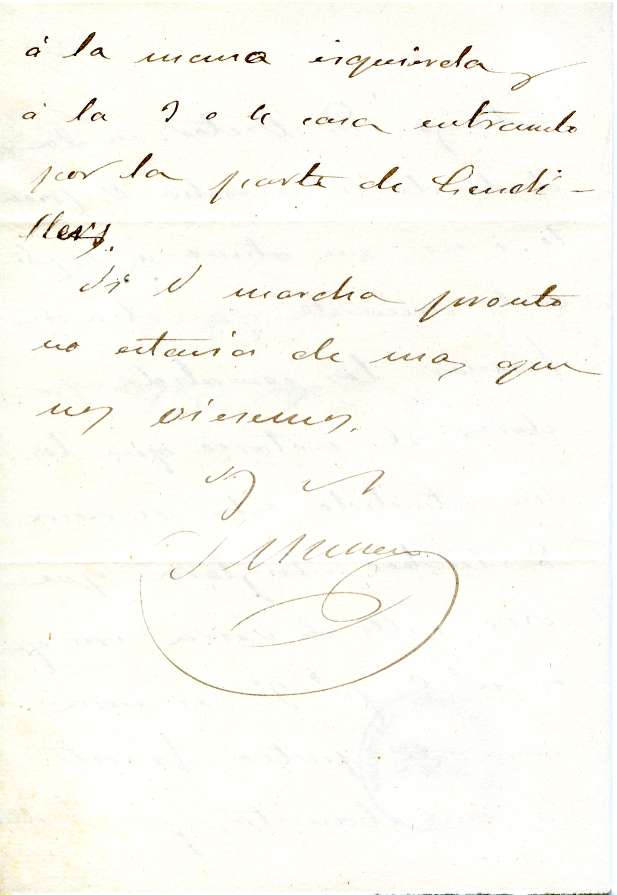 á la mano esquierda y
á la 3 o 4 casa entrando
por la parte de Gendi-
llers.
Si V marcha pronto
no estaria de mas que
nos viesemos.